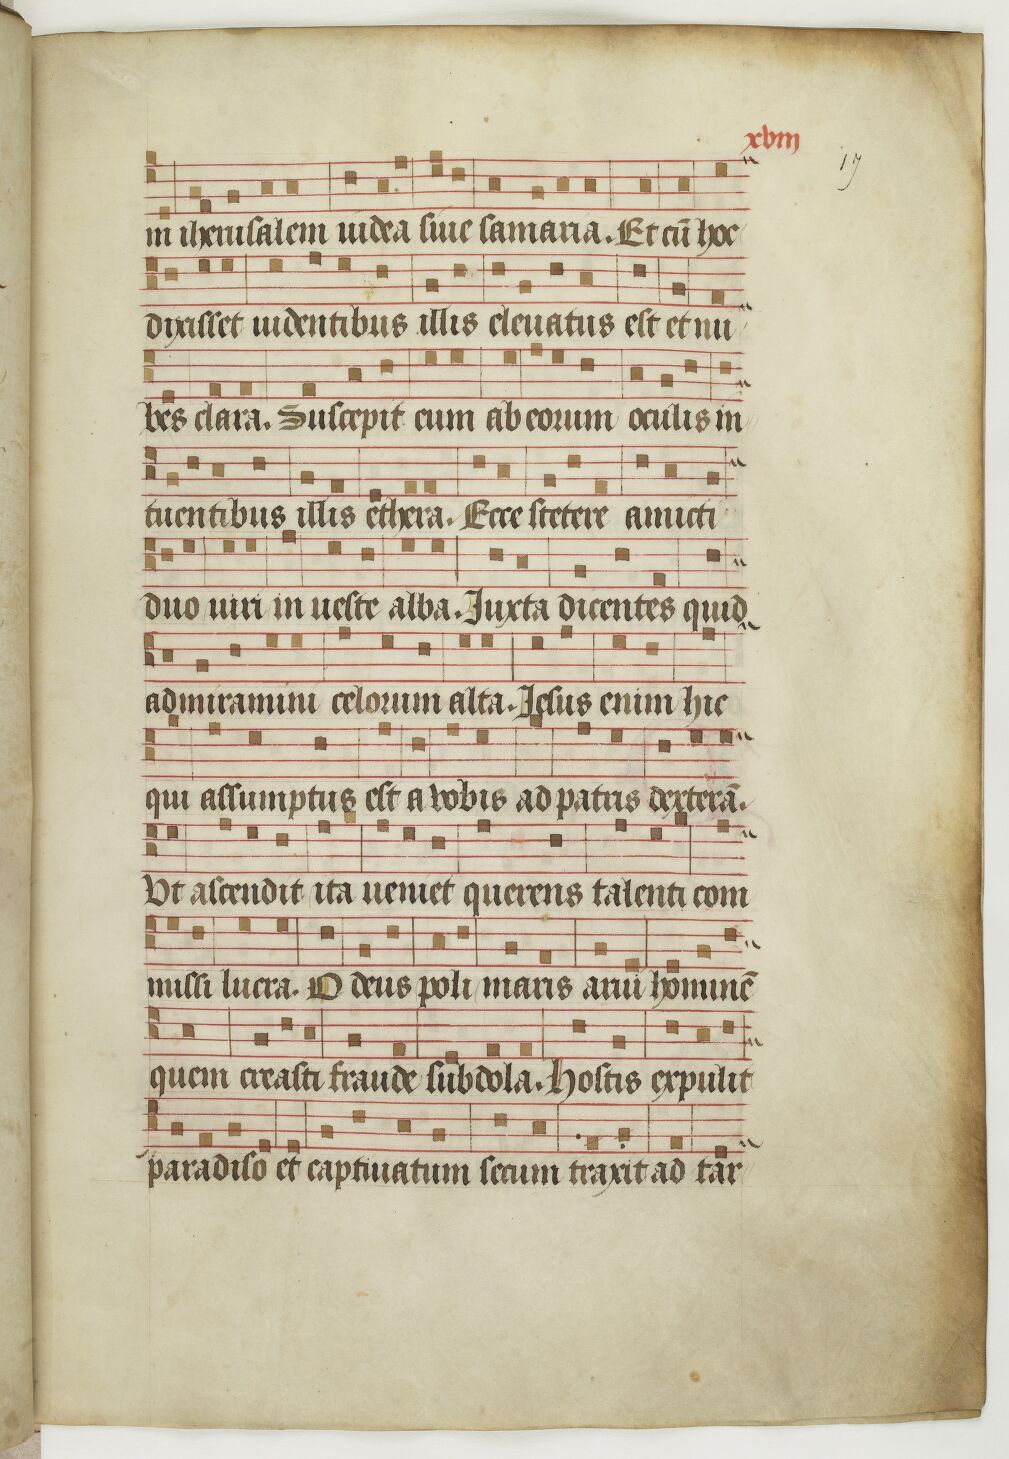 xviii
17
in iherusalem iudea siue samaria. Et cū hoc
dixisset uidentibus illis eleuatus est et nu
bes clara. Suscepit eum ab eorum oculis in
tuentibus illis ethera. Ecce stetere amicti
duo uiri in ueste alba. Iuxta dicentes quid
admiramini celorum alta. Iesus enim hic
qui assumptus est a vobis ad patris dexterā.
Vt ascendit ita ueniet querens talenti com
missi lucra. O deus poli maris aruī hominē
quem creasti fraude subdola. Hostis expulit
paradiso et captiuatum secum traxit ad tar